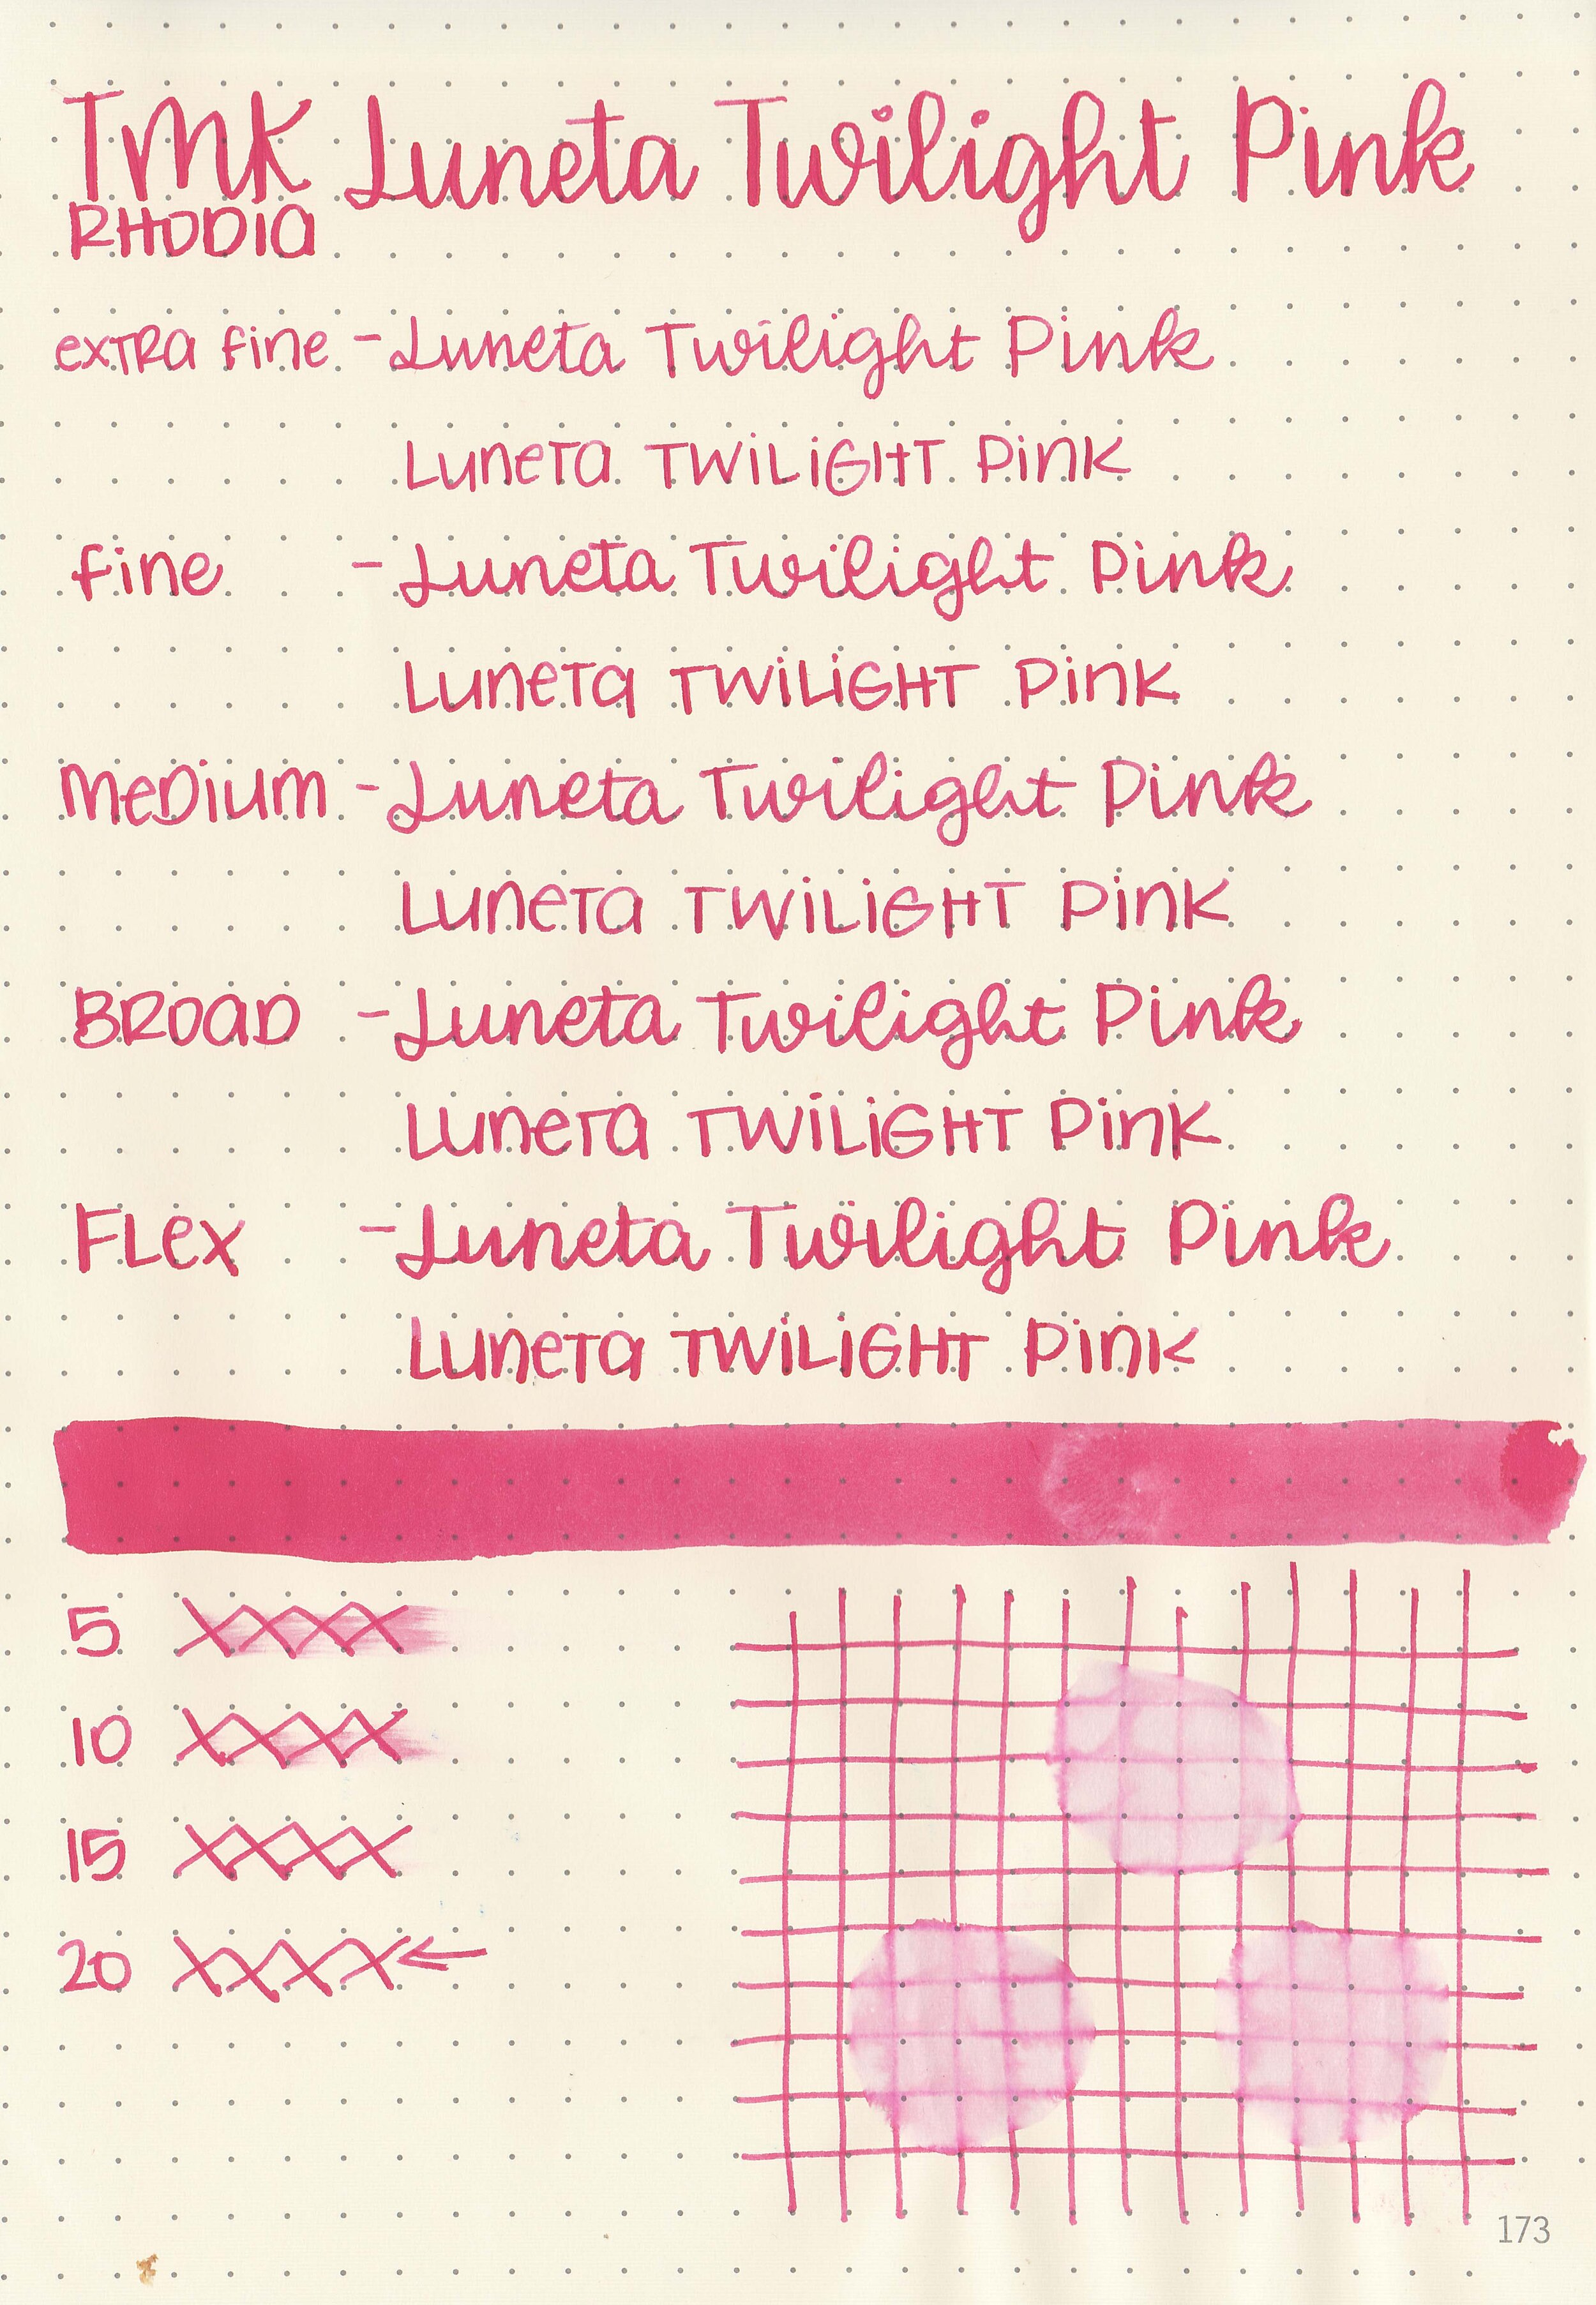 TMK Luneta Twilight Pink
RHODIA
exTRa fine - Luneta Twilight Pink
LuneTa TWiLiGHT Pink
fine - Luneta Twilight Pink
LuneTa TWiLiGHT Pink
MeDium - Luneta Twilight Pink
LuneTa TWiLiGHT Pink
BROaD - Luneta Twilight Pink
LuneTa TWiLiGHT Pink
FLex - Luneta Twilight Pink
LuneTa TWiLiGHT Pink
5 XXXX
10 XXXX
15 XXXX
20 XXXX ←
173